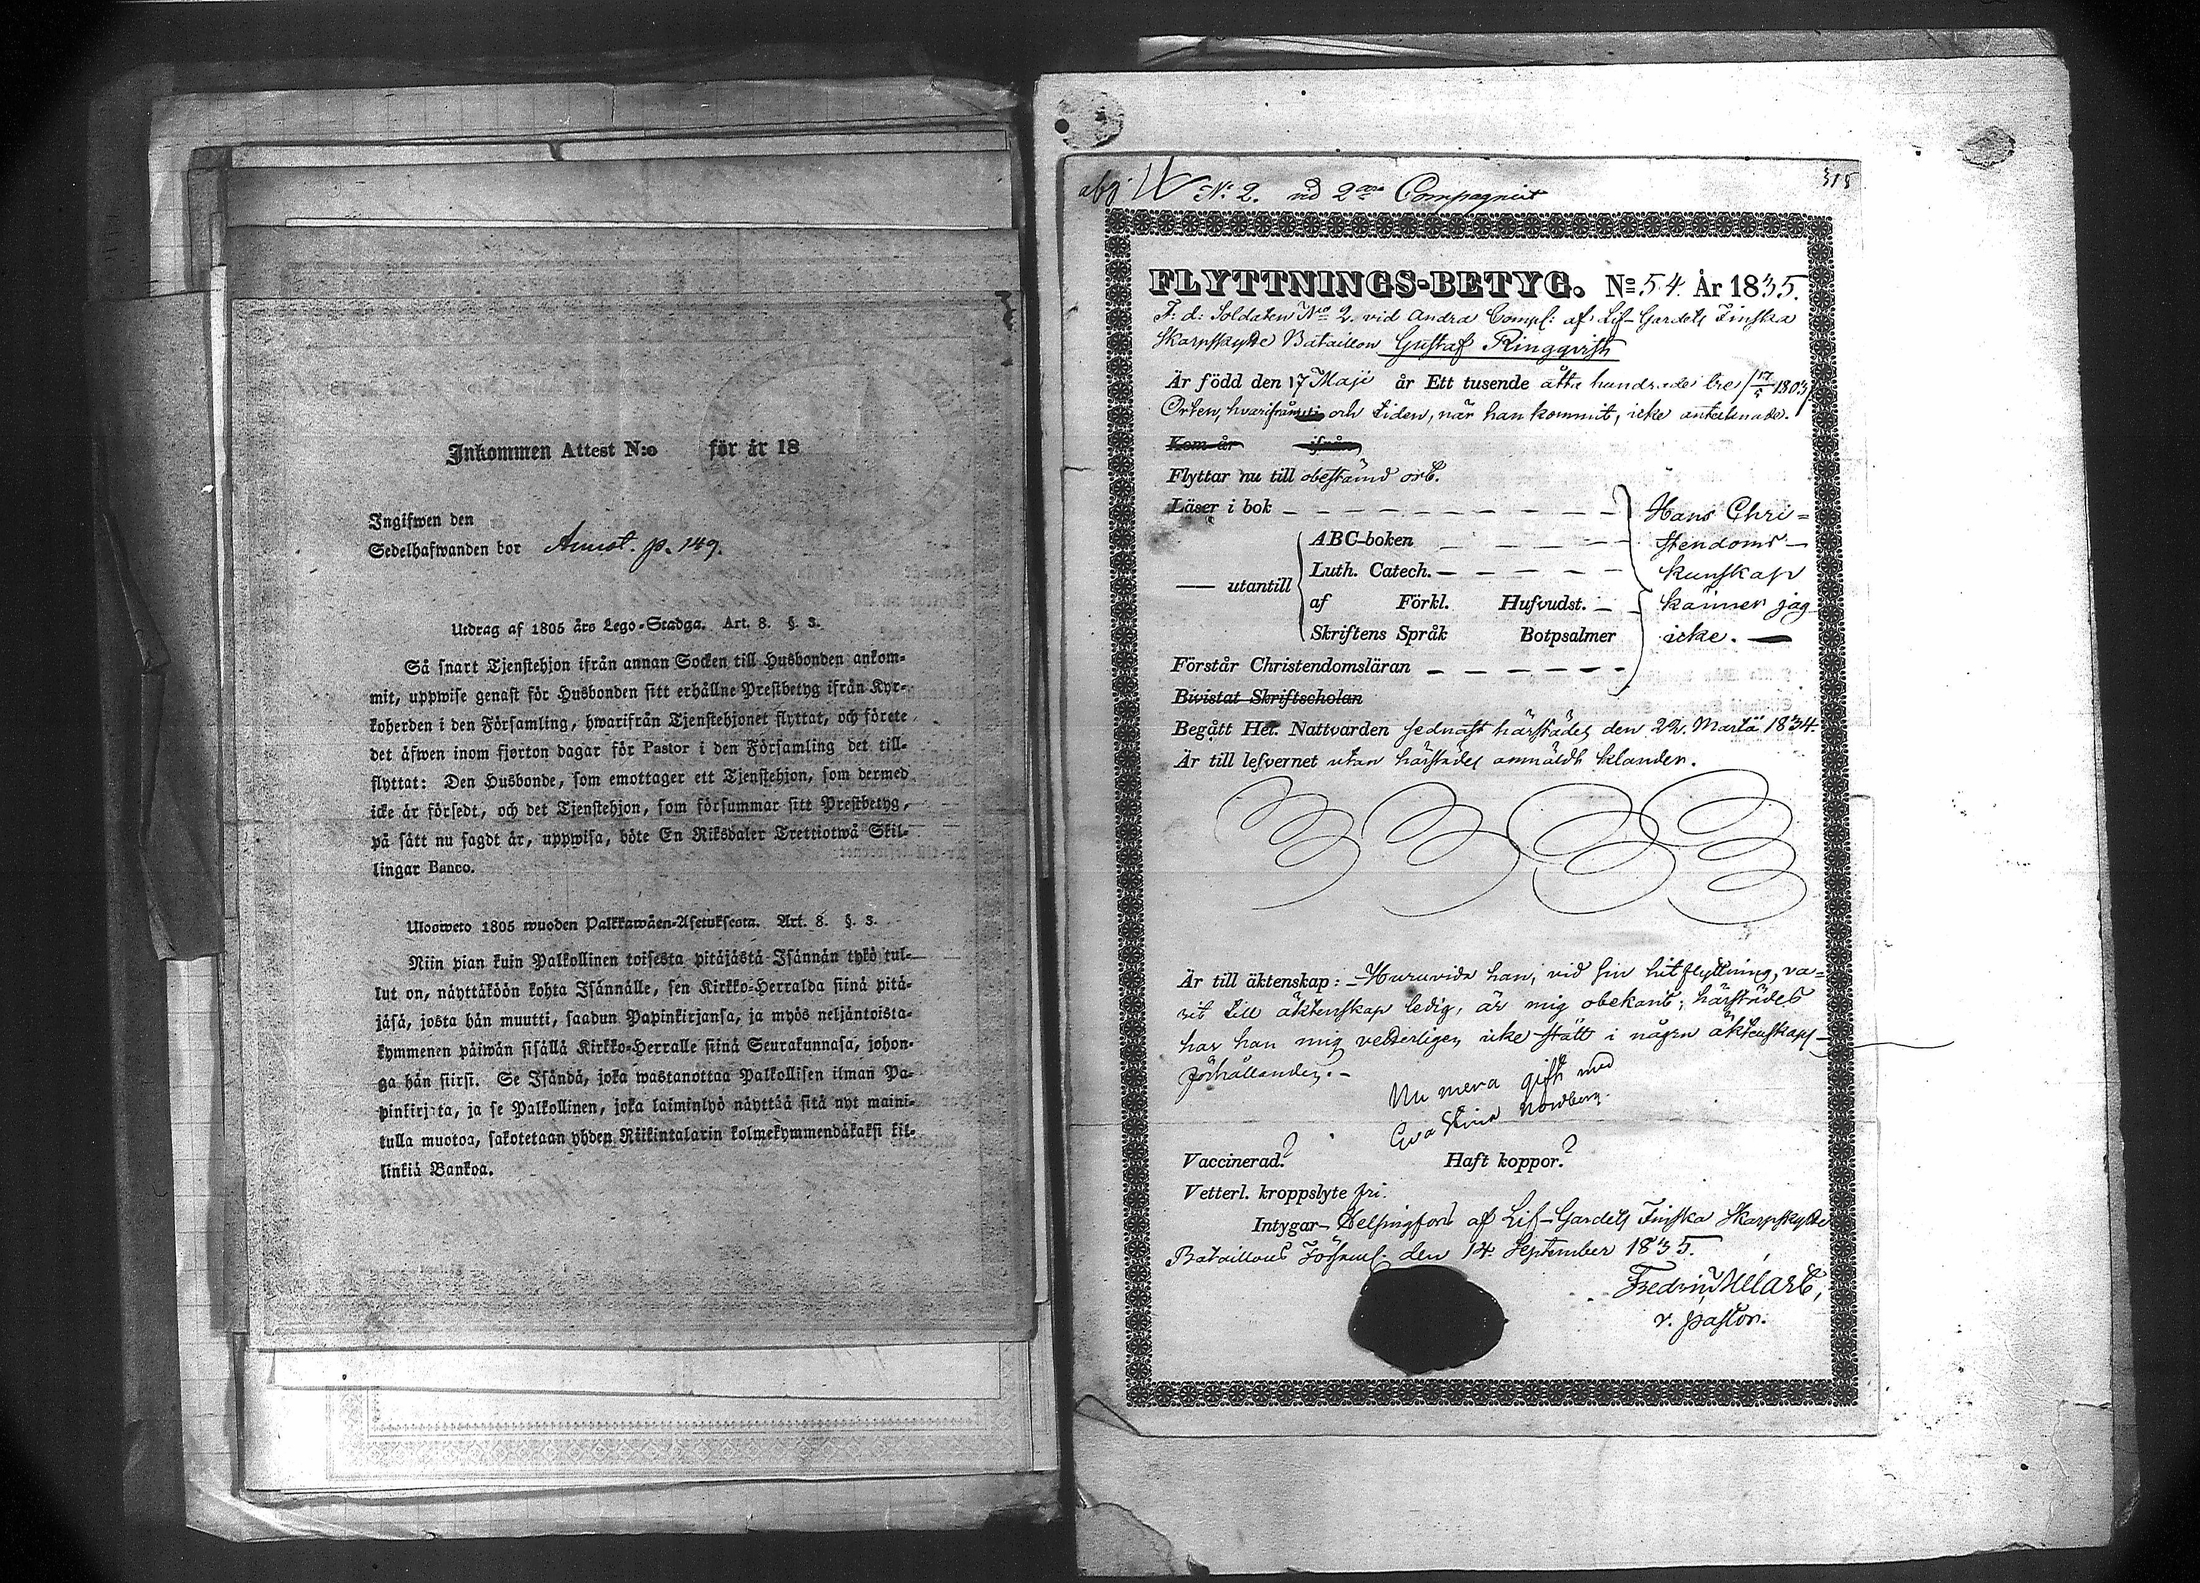 Inkommen Attest N:o för år 18
Ingifwen den
Sedelhafwanden bor Annot. p. 149.
Utdrag af 1805 års Lego-Stadga. Art. 8. §. 3.
Så snart Tjenstehjon ifrån annan Socken till Husbonden ankom-
mit, uppwise genast för Husbonden sitt erhållne Prestbetyg ifrån Kyr-
koherden i den Församling, hwarifrån Tjenstehjonet flyttat, och förete
det äfwen inom fjorton dagar för Pastor i den Församling det till-
flyttat: Den Husbonde, som emottager ett Tjenstehjon, som dermed
icke är försedt, och det Tjenstehjon, som försummar sitt Prestbetyg,
på sätt nu sagdt är, uppwisa, böte En Riksdaler Trettiotwå Skil-
lingar Banco.
Ulosweto 1805 wuoden Palkkawäen-Asetuksesta. Art. 8. §. 3.
Niin pian kuin Palkollinen toisesta pitäjästä Isännän tykö tul-
lut on, näyttäköön kohta Isännälle, sen Kirkko-Herralda siinä pitä-
jäsä, josta hän muutti, saadun Papinkirjansa, ja myös neljäntoista-
kymmenen päiwän sisällä Kirkko-Herralle siinä Seurakunnasa, johon-
ga hän siirsi. Se Isändä, joka wastanottaa Palkollisen ilman Pa-
pinkirjata, ja se Palkollinen, joka laiminlyö näyttää sitä nyt maini-
tulla muotoa, sakotetaan yhden Riikintalarin kolmekymmendäkaksi kil-
linkiä Bankoa.
318
N:o 2. vid 2dra Compagniet
FLYTTNINGS-BETYG. No 54. År 1835.
F. d. Soldaten No 2. vid Andra Comp: af Lif-Gardets Finska
Skarpskytte Bataillon Gustaf Ringqvist
Är född den 17 Maji år Ett tusende åtta hundrade tre /17/5 1803/
Orten, hvarifrån och tiden, när han kommit, icke antecknade.
Kom år ifrån
Flyttar nu till obestämd ort.
Läser i bok Hans Chri=
ABC-boken stendoms-
Luth. Catech. kunskap
utantill
af Förkl. Hufvudst. känner jag
Skriftens Språk Botpsalmer icke.
Förstår Christendomsläran
Bivistat Skriftscholan
Begått H. H. Nattvarden sednast härstädes den 22. Martii 1834.
Är till lefvernet utan härstädes anmäldt klander.
Är till äktenskap: Huruvida han, vid sin hitflyttning, va=
rit till äktenskap ledig, är mig obekant; härstädes
har han mig vetterligen icke stått i någon äktenskaps-
förhållanden.
Nu mera gift med
Eva Stina Nordberg.
Vaccinerad? Haft koppor?
Vetterl. kroppslyte fri.
Intygar Helsingfors af Lif-Gardets Finska Skarpskytte
Bataillons Församl. den 14. September 1835.
v. pastor.